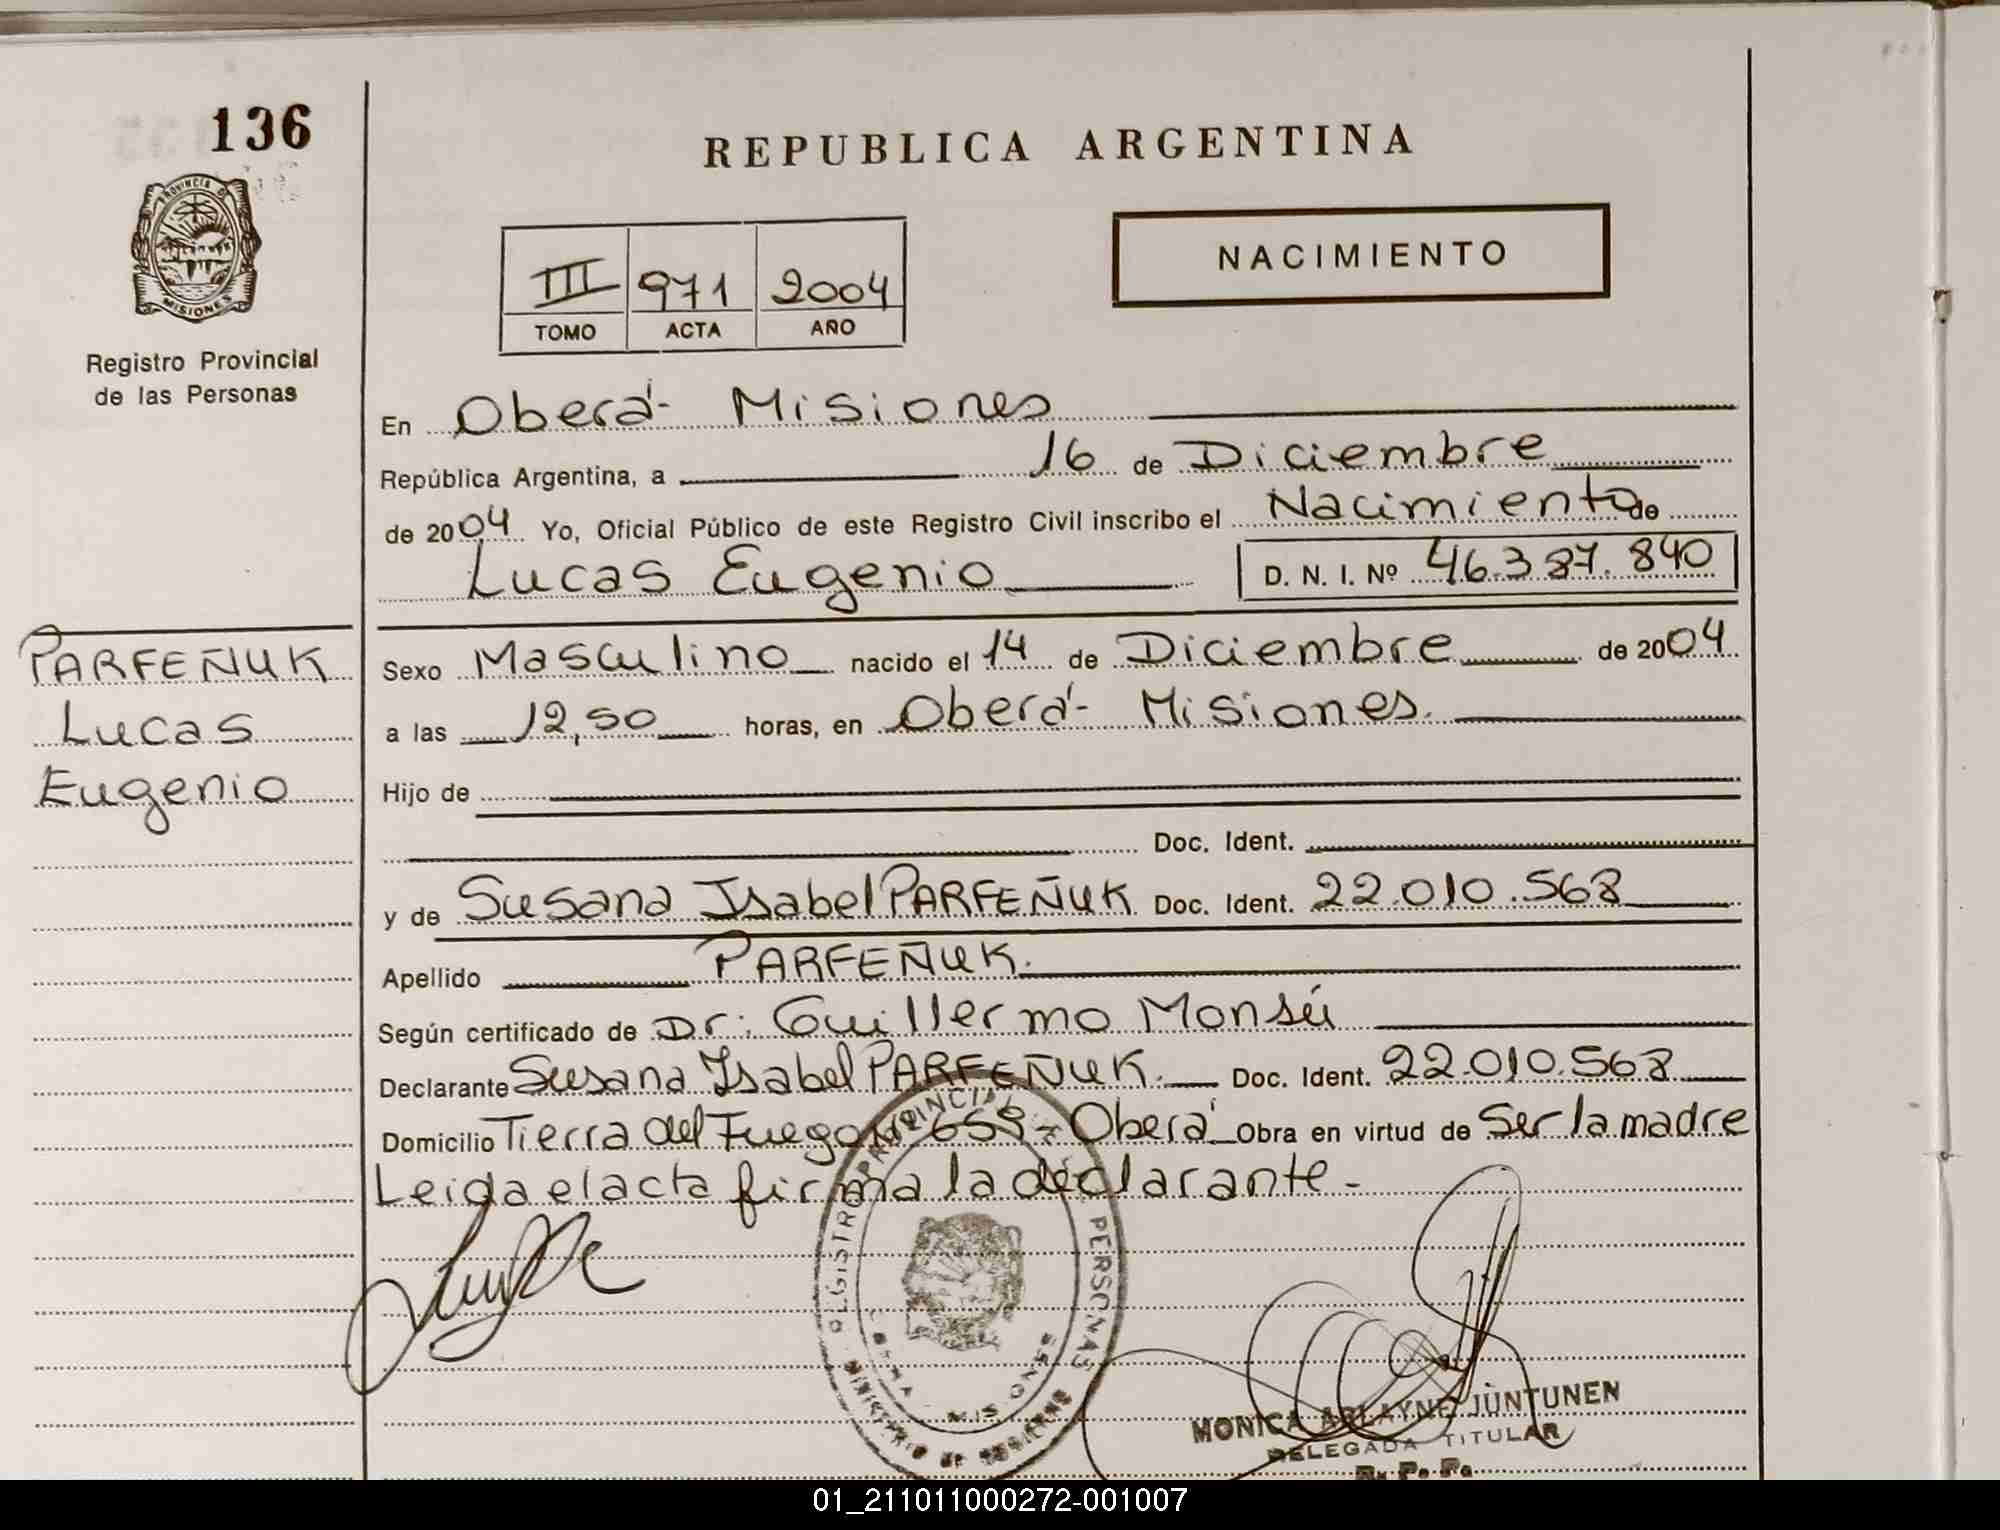 136
PROVINCIA DE
MISIONES
Registro Provincial
de las Personas
REPUBLICA ARGENTINA
III 971 2004
TOMO ACTA AÑO
NACIMIENTO
En Oberá - Misiones
República Argentina, a 16 de Diciembre
de 2004 Yo, Oficial Público de este Registro Civil inscribo el Nacimiento de
Lucas Eugenio D. N. I. Nº 46.387.840
PARFEÑUK
Lucas
Eugenio
Sexo Masculino nacido el 14 de Diciembre de 2004
a las 12,50 horas, en Oberá - Misiones.
Hijo de
Doc. Ident.
y de Susana Isabel PARFEÑUK Doc. Ident. 22.010.568
Apellido PARFEÑUK.
Según certificado de Dr: Guillermo Monsú
Declarante Susana Isabel PARFEÑUK. Doc. Ident. 22.010.568
Domicilio Tierra del Fuego Nº 659 - Oberá Obra en virtud de Ser la madre
Leida el acta firma la declarante. -
REGISTRO PROVINCIAL PERSONAS
MINISTERIO DE GOBIERNO
MISIONES
MONICA ARLAYNE JUNTUNEN
DELEGADA TITULAR
R. P. P.
01_211011000272-001007